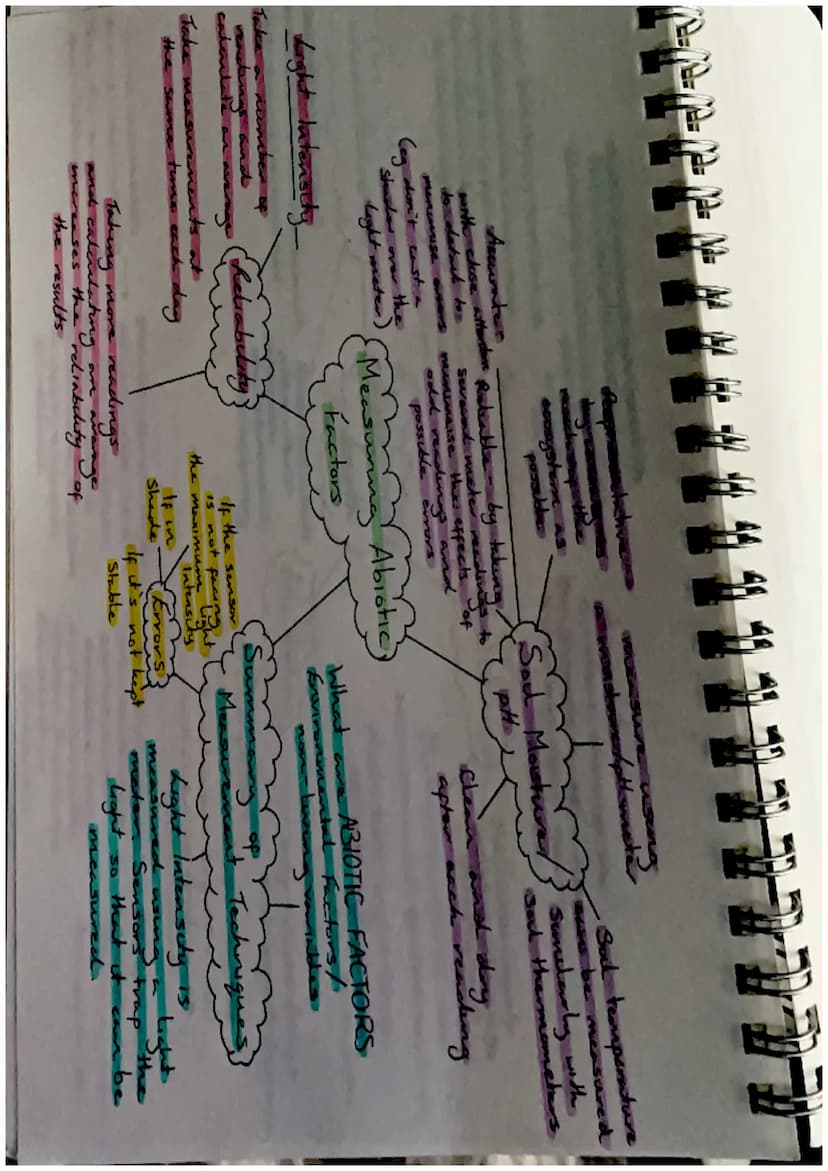 Measuring Abiotic
Factors
Soil Moisture/
pH
measure using
a moisture/pH meter
Representative -
readings of the
ecosystem as
possible
Accurate
with close attention
to detail to
minimise errors
(eg don't cast a
shadow over the
light meter)
Reliable - by taking
several meter readings to
minimise the effects of
odd readings and
possible errors
Soil temperature
can be measured
Similarly with
soil thermometers
Clean and dry
after each reading
Reliability
Light Intensity -
Take a number of
readings and
calculate an average
Take measurements at
the same time each day
Taking more readings
and calculating an average
increases the reliability of
the results
Summary of
Measurement Techniques
What are ABIOTIC FACTORS
Environmental Factors/
non-living variables
Light Intensity is
measured using a light
meter. Sensors trap the
light so that it can be
measured
Errors
If the sensor
is not facing
the maximum light
Intensity
If in
Shade
If it's not kept
Stable